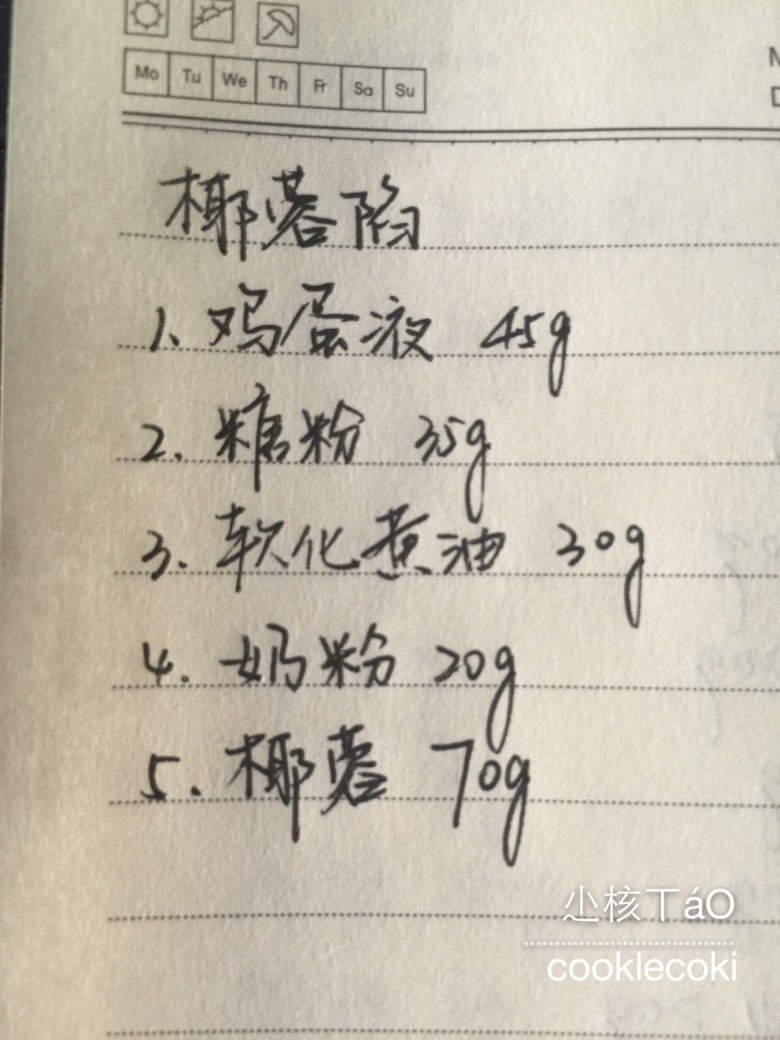 Mo Tu We Th Fr Sa Su
椰蓉陷
1、鸡蛋液 45g
2. 糖粉 35g
3. 软化黄油 30g
4. 奶粉 20g
5. 椰蓉 70g
尐核丅áO
cooklecoki